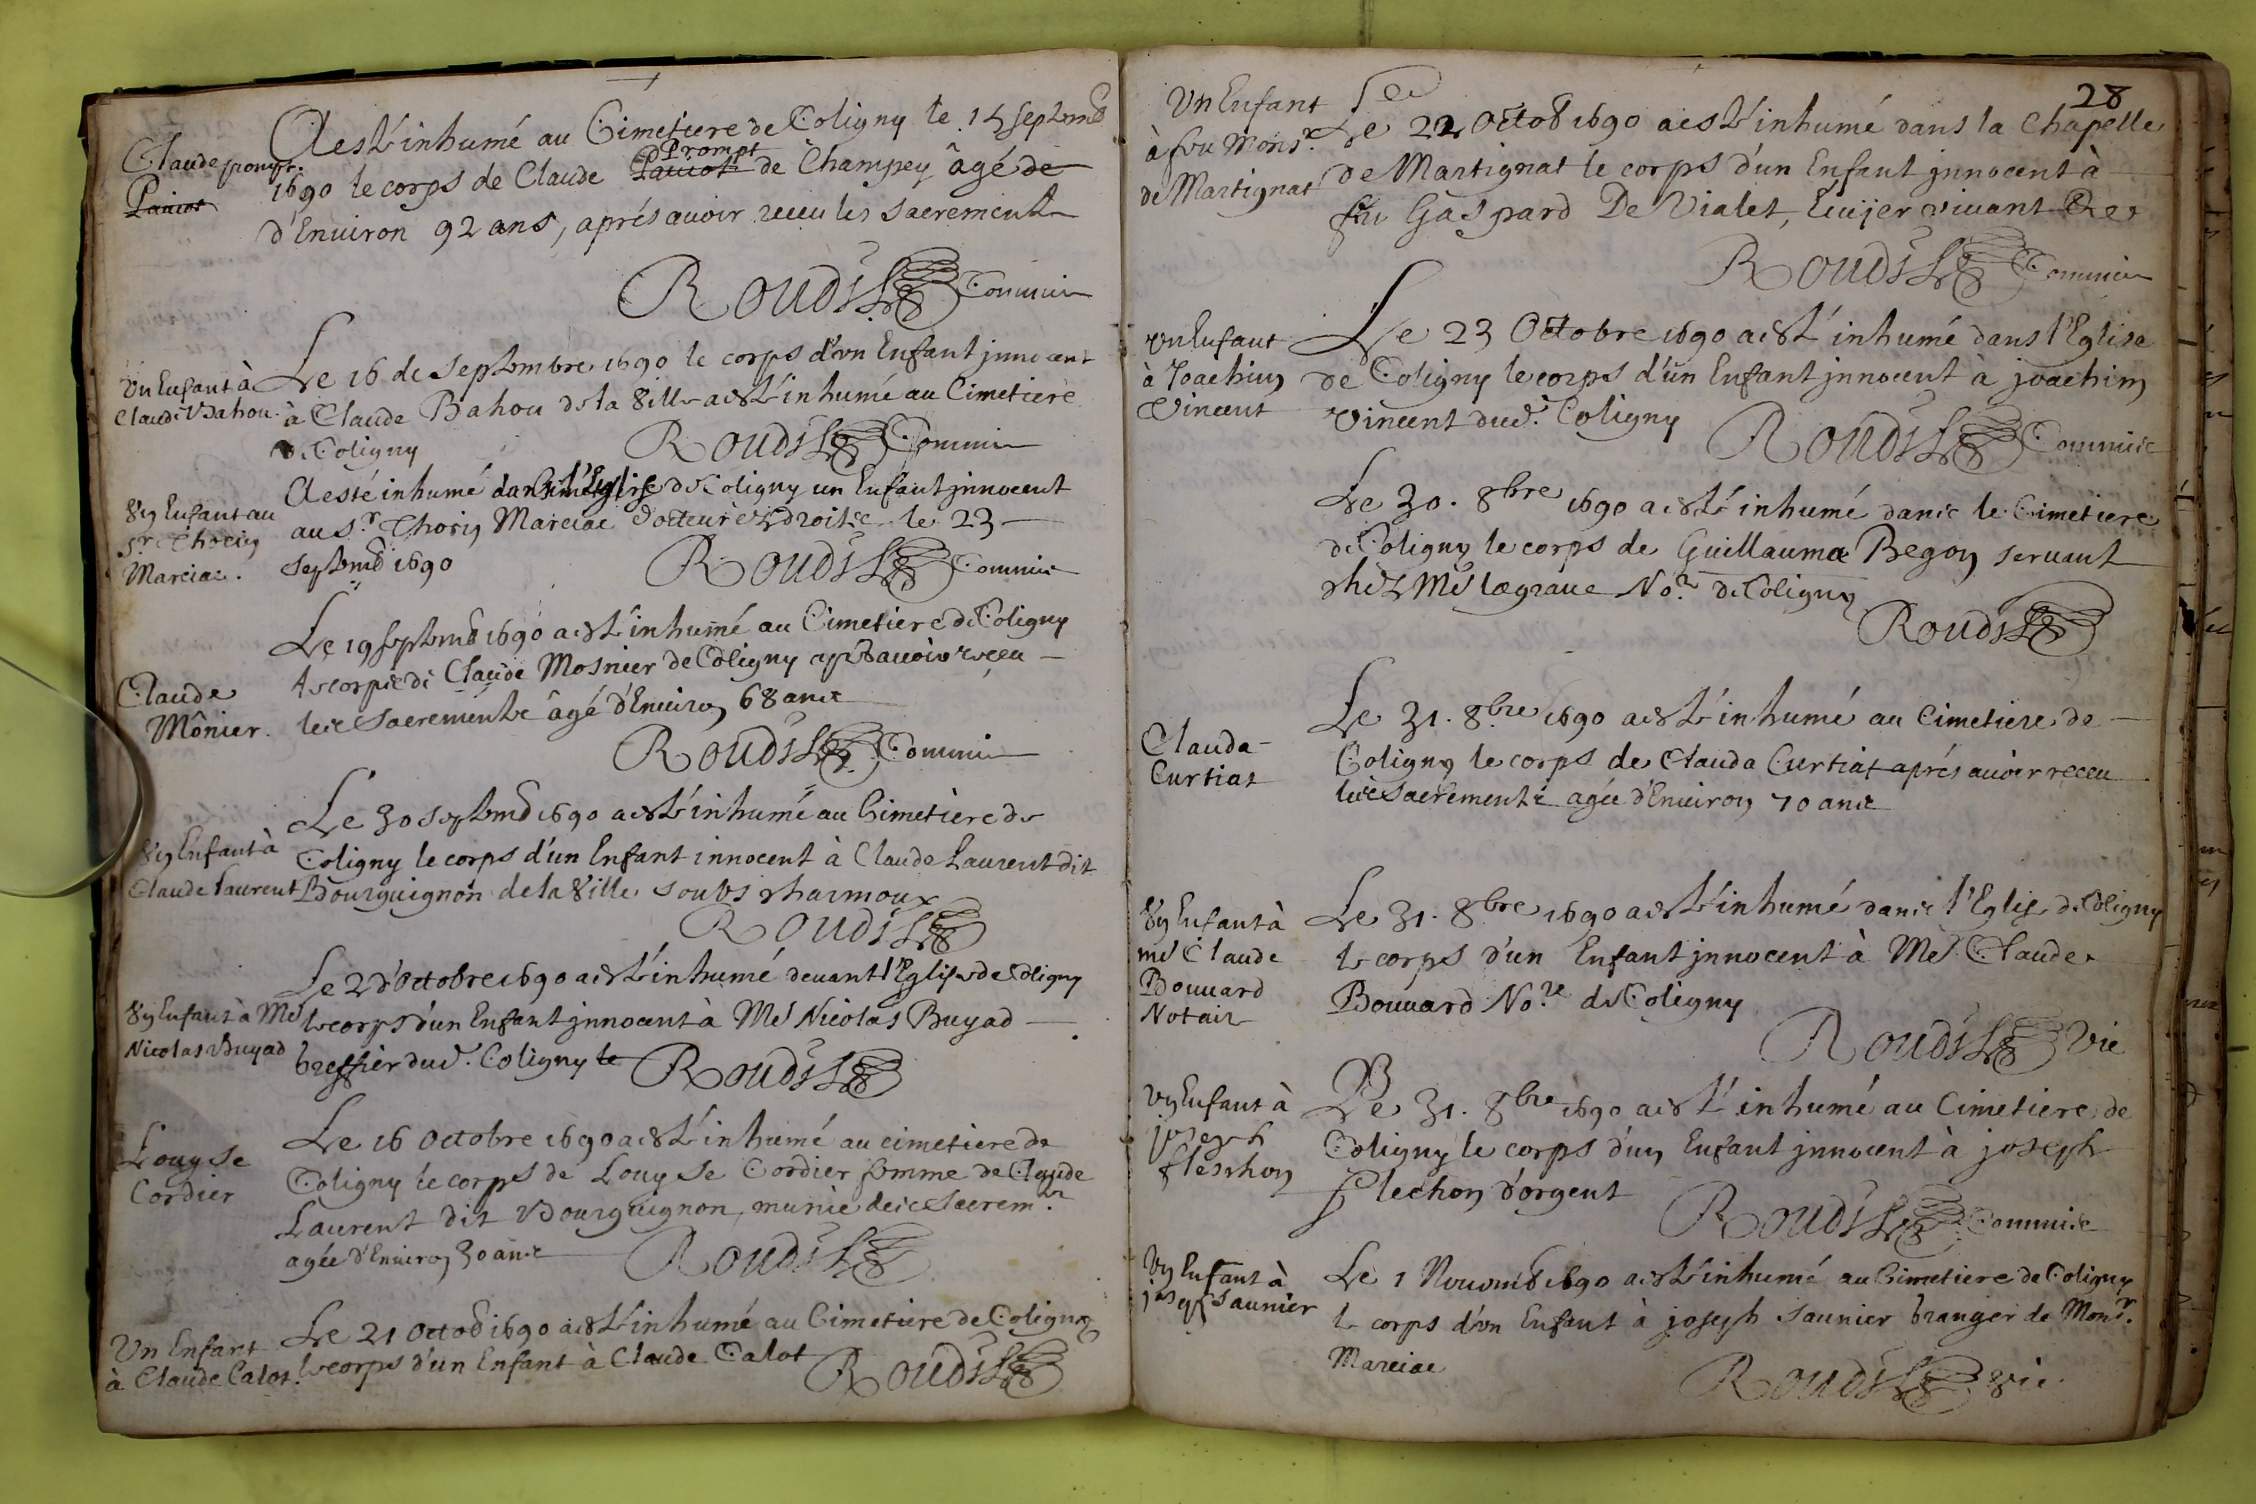 Claude prompt.
Pauiot
A esté inhumé au Cimetiere de Coligny le 15 Septemb
1690 le corps de Claude Pauiot Prompt de Champey âgé de
d'Enuiron 92 ans, aprés auoir receu les sacrements
Roudil Commis
Un Enfant à
Claude Bahou.
Le 16 de Septembre 1690 le corps d'vn Enfant jnnocent
à Claude Bahou de la Ville a esté inhumé au Cimetiere
de Coligny
Roudil Commis
Vn Enfant au
Sr. Thorin
Marciac.
A esté inhumé dans l'Eglise de Coligny un Enfant jnnocent
au Sr. Thorin Marciac docteur ez droits le 23
Septemb 1690
Roudil Commis
Claude
Mônier.
Le 19 Septemb 1690 a esté inhumé au Cimetiere de Coligny
le corps de Claude Mosnier de Coligny apres auoir receu
les Sacrements âgé d'Enuiron 68 ans
Roudil Commis
Vn Enfant à
Claude Laurent
Le 30 Septemb 1690 a esté inhumé au Cimetiere de
Coligny le corps d'un Enfant innocent à Claude Laurent dit
Bourguignon de la Ville soubs charmoux
Roudil
Vn Enfant à Me
Nicolas Buyad
Le 2 d'Octobre 1690 a esté inhumé deuant l'Eglise de Coligny
le corps d'un Enfant jnnocent à Me Nicolas Buyad
greffier dud. Coligny le
Roudil
Louyse
Cordier
Le 16 Octobre 1690 a esté inhumé au cimetiere de
Coligny le corps de Louyse Cordier femme de Claude
Laurent dit Bourguignon, munie des Sacrem.ts
agée d'Enuiron 30 ans
Roudil
Un Enfant
à Claude Calot.
Le 21 Octob 1690 a esté inhumé au Cimetiere de Coligny
le corps d'un Enfant à Claude Calot
Roudil
28
Un Enfant
à feu Monsr.
de Martignat
Le 22 Octob 1690 a esté inhumé dans la Chapelle
de Martignat le corps d'un Enfant jnnocent à
feu Gaspard De Vialet, Ecuijer viuant
Roudil Commis
vn Enfant
à Joachim
Vincent
Le 23 Octobre 1690 a esté inhumé dans l'Eglise
de Coligny le corps d'un Enfant jnnocent à joachim
Vincent dud. Coligny
Roudil Commis
Le 30. 8bre 1690 a esté inhumé dans le Cimetiere
de Coligny le corps de Guillauma Begon seruant
chez Me lagraue No.re de Coligny
Roudil
Clauda
Curtiat
Le 31. 8bre 1690 a esté inhumé au Cimetiere de
Coligny le corps de Clauda Curtiat aprés auoir receu
les Sacrements agée d'Enuiron 70 ans
Vn Enfant à
me Claude
Bouuard
Notaire
Le 31. 8bre 1690 a esté inhumé dans l'Eglise de Coligny
le corps d'un Enfant jnnocent à Me Claude
Bouuard No.re de Coligny
Roudil Vic
Vn Enfant à
joseph
fleschon
Le 31. 8bre 1690 a esté inhumé au Cimetiere de
Coligny le corps d'un Enfant jnnocent à joseph
flechon d'orgent
Roudil Commis
Vn Enfant à
joseph Saunier
Le 1 Nouemb 1690 a esté inhumé au Cimetiere de Coligny
le corps d'vn Enfant à joseph Saunier granger de Monsr.
Marciac
Roudil Vic.